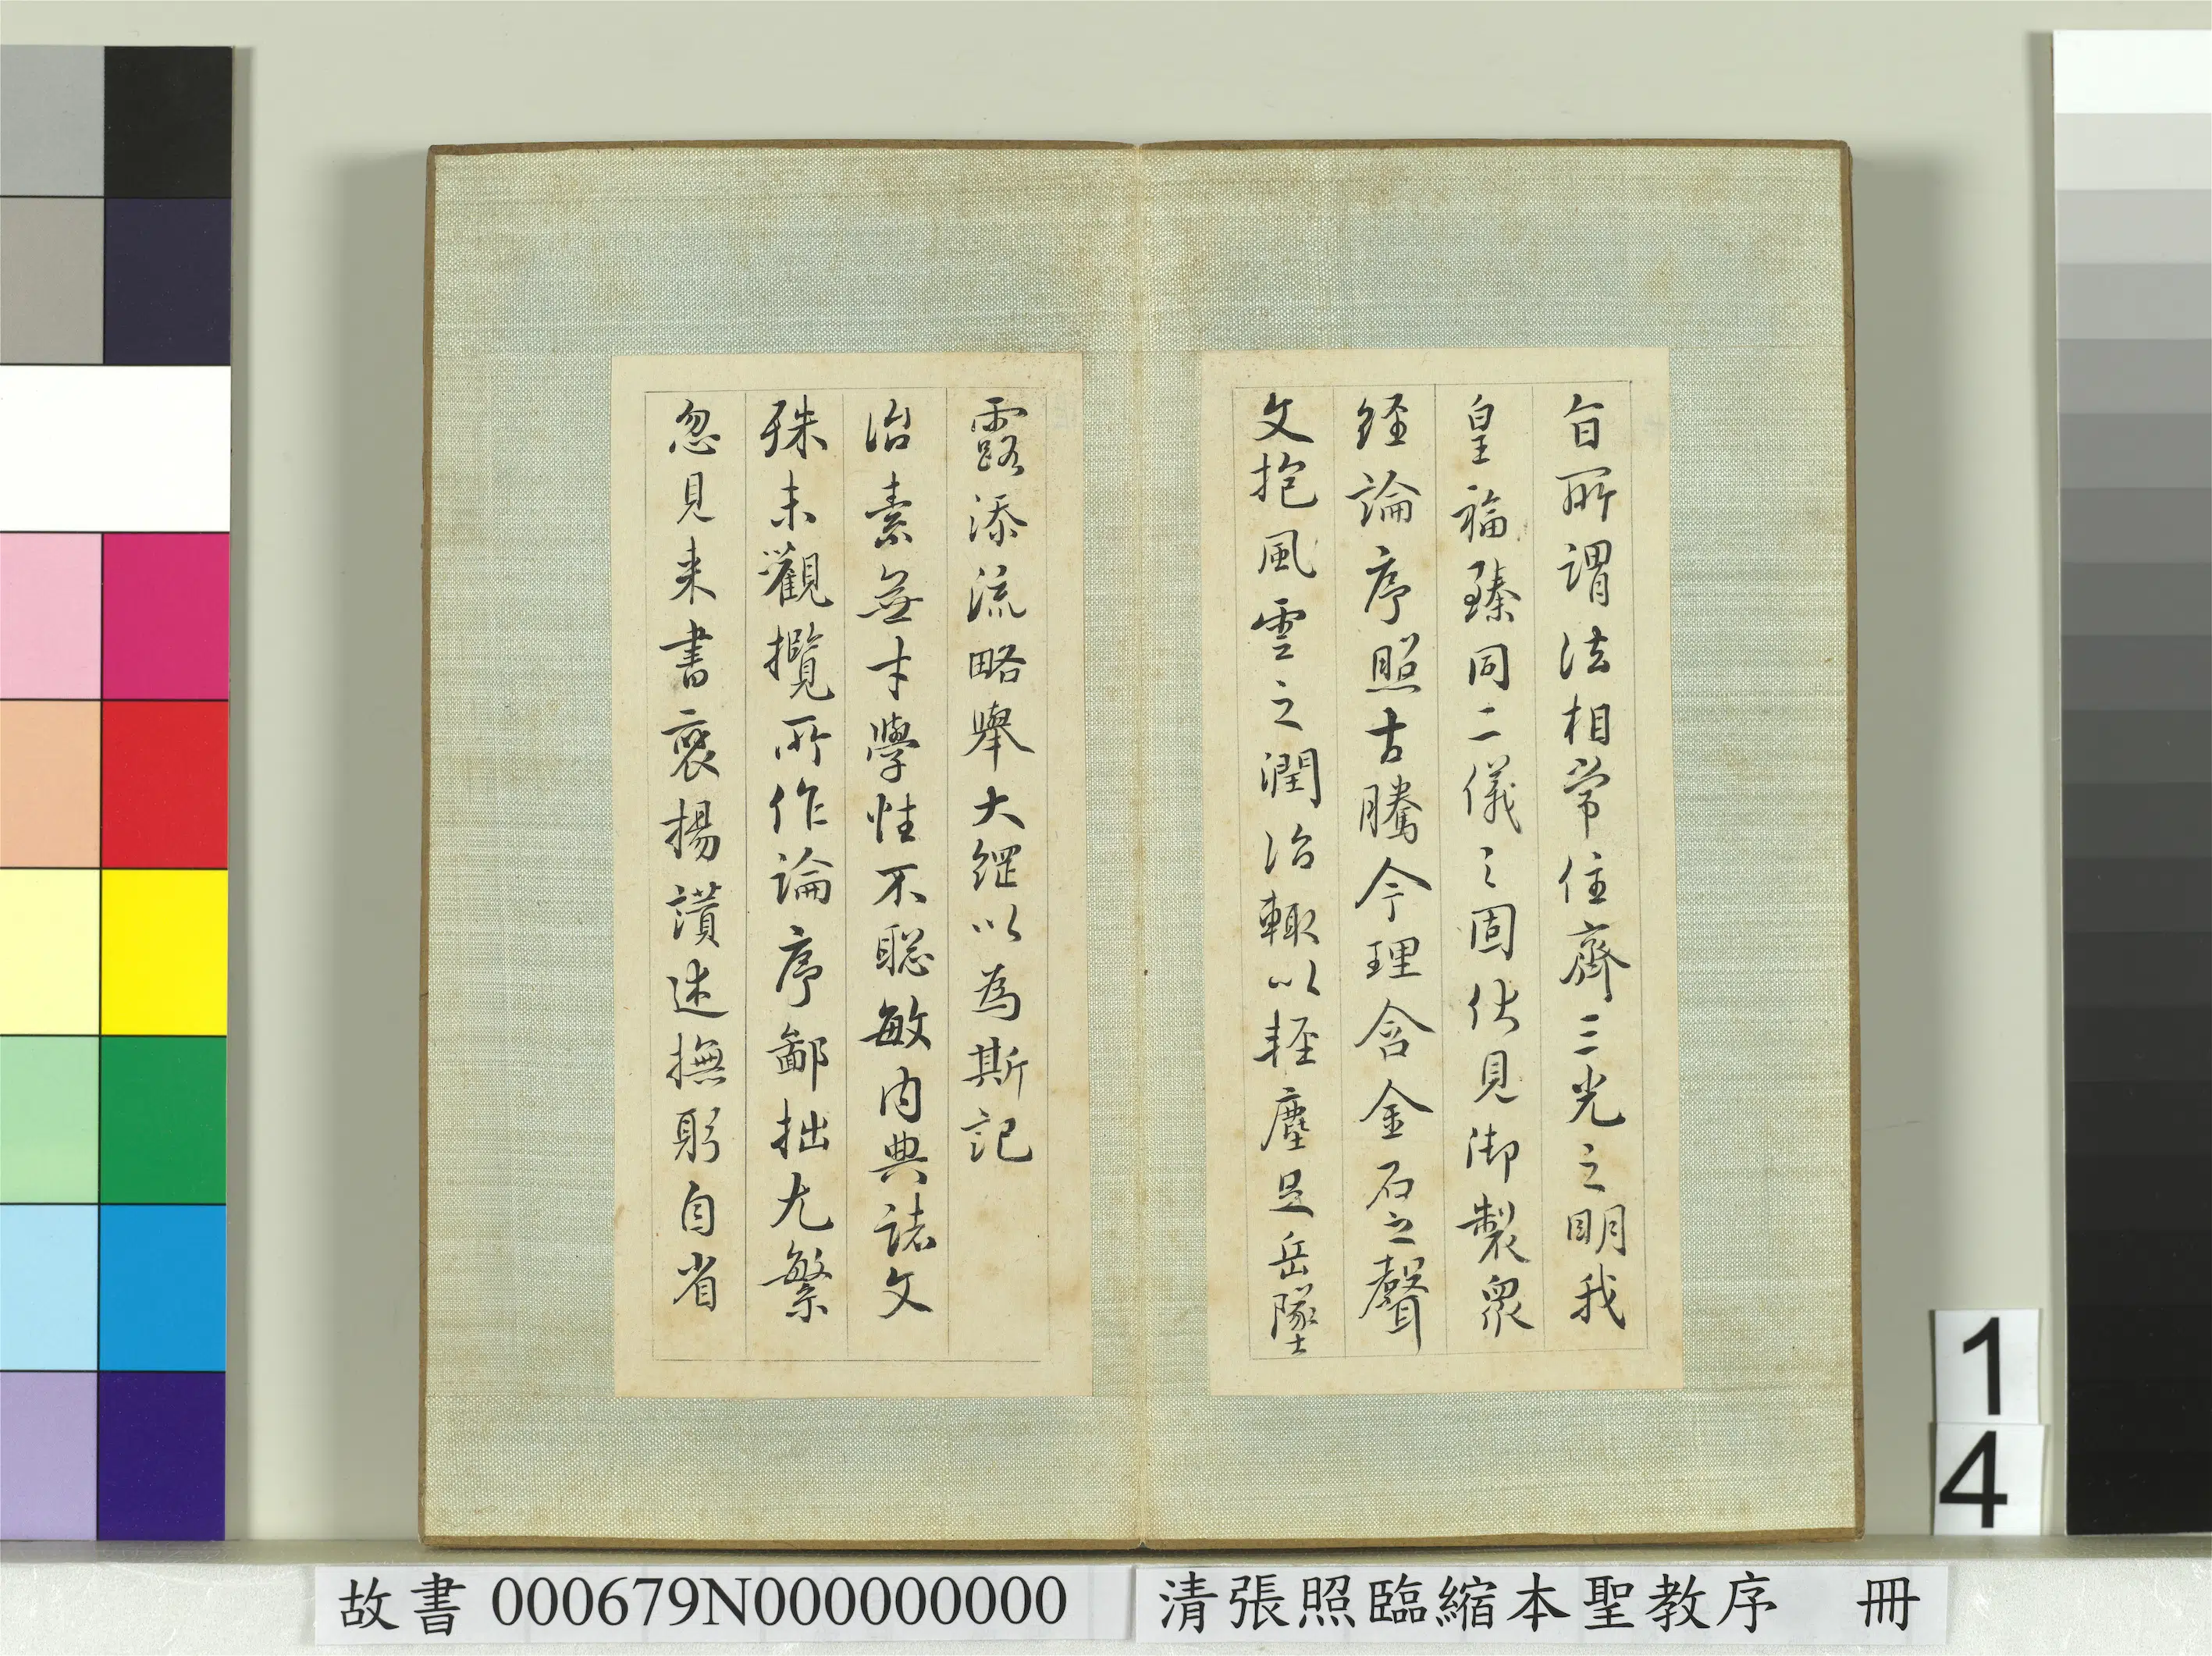 旨所謂法相常住齊三光之明我
皇福臻同二儀之固伏見御製眾
經論序照古騰今理含金石之聲
文抱風雲之潤治輒以輕塵足岳墜
露添流略舉大綱以為斯記
治素無才學性不聰敏內典諸文
殊未觀攬所作論序鄙拙尤繁
忽見來書褒揚讚述撫躬自省
14
故書 000679N000000000
清張照臨縮本聖教序 冊